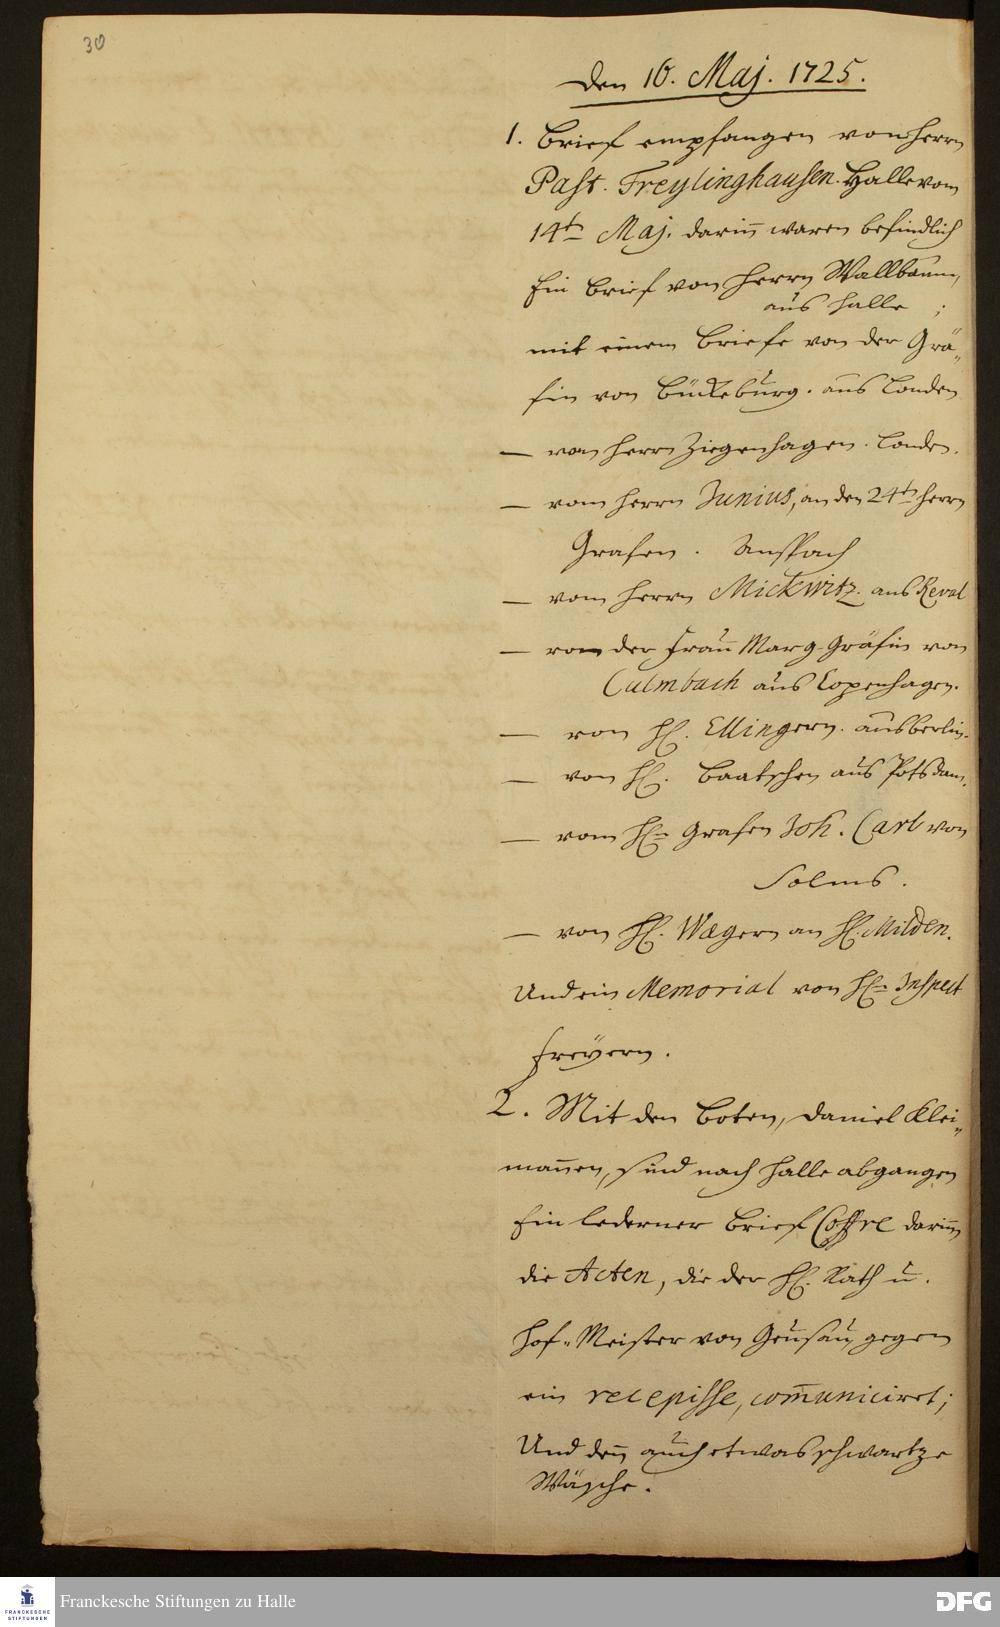 30
Den 16. Maj. 1725.
1. Brief empfangen von Herrn
Past. Freylinghausen. Halle vom
14tn Maj. darin̄ waren befindlich
Ein Brief von Herrn Wallbaum,
aus Halle ;
mit einem Briefe von der Grä„
fin von Bückeburg. aus Londen
— von Herrn Ziegenhagen. Londen.
— vom Herrn Junius, an den 24tn Herrn
Grafen . Anspach
— vom Herrn Mickwitz. aus Reval
— von der Frau Marg-Gräfin von
Culmbach aus Copenhagen.
— von H. Ellingern. aus Berlin.
— von H. Baatschen aus Potsdam.
— vom Hn Grafen Joh. Carl von
Solms .
— von H. Wægern an H. Milden.
Und ein Memorial von Hn Inspect
Freÿern .
2. Mit den Boten, Daniel Klei„
man̄en, sind nach Halle abgangen
Ein lederner Brief Coffre darin̄
die Acten, die der H. Rath u.
Hof-Meister von Geusau, gegen
ein recepisse, com̄uniciret;
Und den̄ auch etwas schwartze
Wäsche .
FRANCKESCHE
STIFTUNGEN
Franckesche Stiftungen zu Halle
DFG